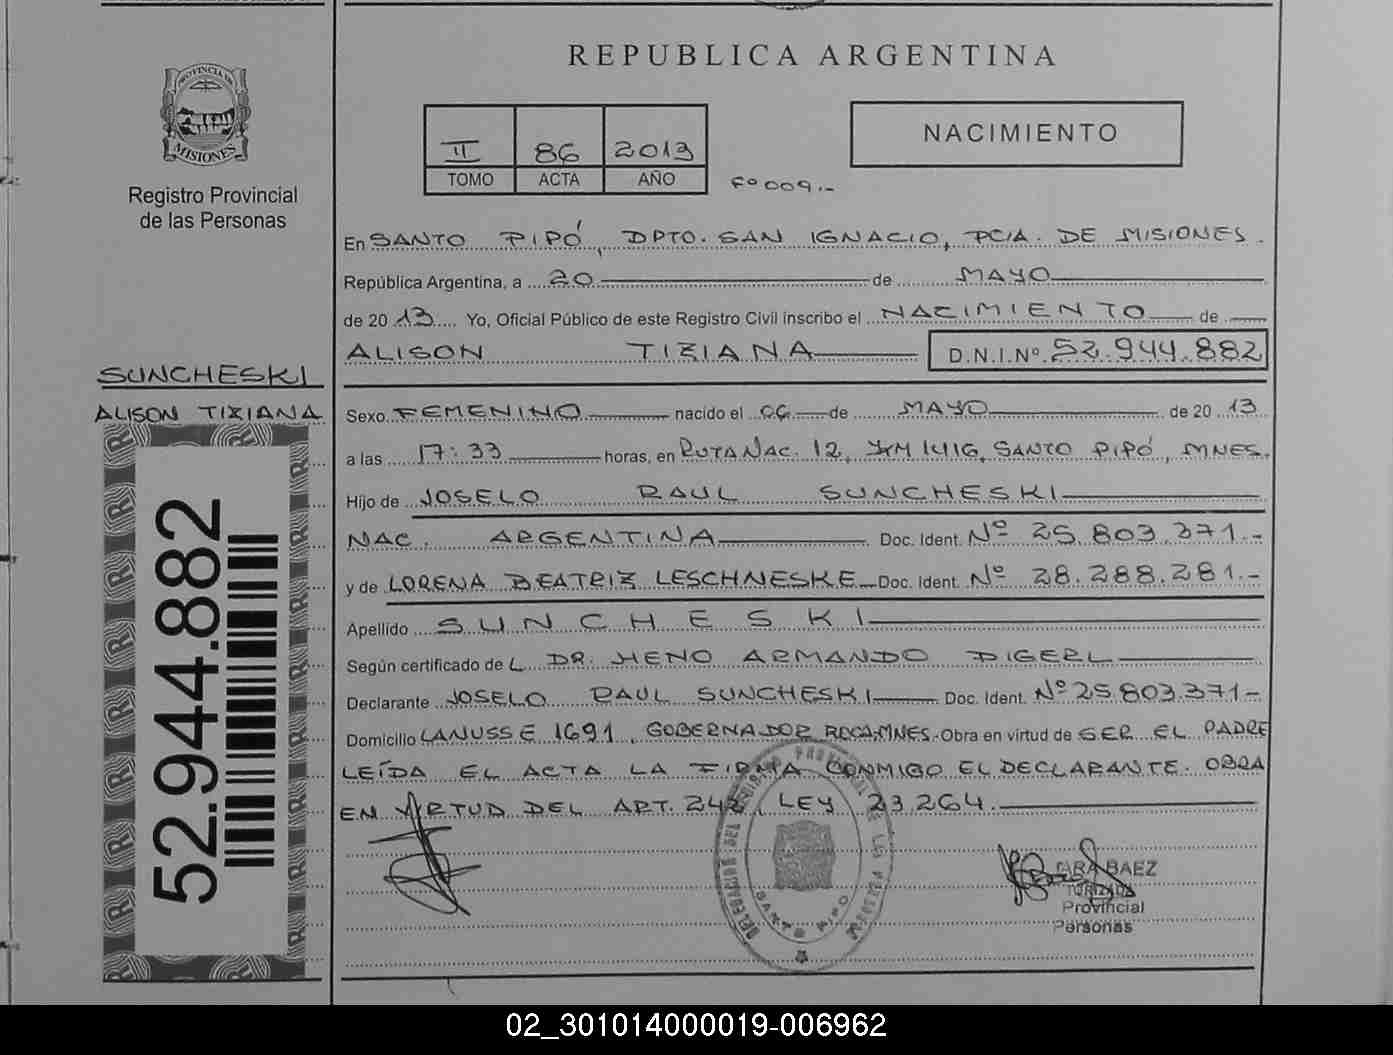 REPUBLICA ARGENTINA
PROVINCIA DE
MISIONES
Registro Provincial
de las Personas
II 86 2013
TOMO ACTA AÑO
Fº 009.-
NACIMIENTO
En SANTO PIPÓ, DPTO. SAN IGNACIO, PCIA. DE MISIONES.
República Argentina, a 20 de MAYO
de 2013 Yo, Oficial Público de este Registro Civil inscribo el NACIMIENTO de
ALISON TIZIANA D.N.I.Nº 52.944.882
SUNCHESKI
ALISON TIZIANA
Sexo FEMENINO nacido el 06 de MAYO de 2013
a las 17:33 horas, en RUTA NAC. 12, KM 1416, SANTO PIPÓ, MNES.
Hijo de JOSELO RAUL SUNCHESKI
NAC. ARGENTINA Doc. Ident. Nº 25.803.371.-
y de LORENA BEATRIZ LESCHNESKE Doc. Ident. Nº 28.288.281.-
Apellido SUNCHESKI
Según certificado de L DR. HENO ARMANDO DIGERL
Declarante JOSELO RAUL SUNCHESKI Doc. Ident. Nº 25.803.371-
Domicilio LANUSSE 1691, GOBERNADOR ROCA, MNES. Obra en virtud de SER EL PADRE
LEÍDA EL ACTA LA FIRMA CONMIGO EL DECLARANTE. OBRA
EN VIRTUD DEL ART. 242, LEY 23.264.
52.944.882
DELEGACION DEL REGISTRO PROVINCIAL DE LAS PERSONAS
SANTO PIPO
BAEZ
Provincial
Personas
02_301014000019-006962